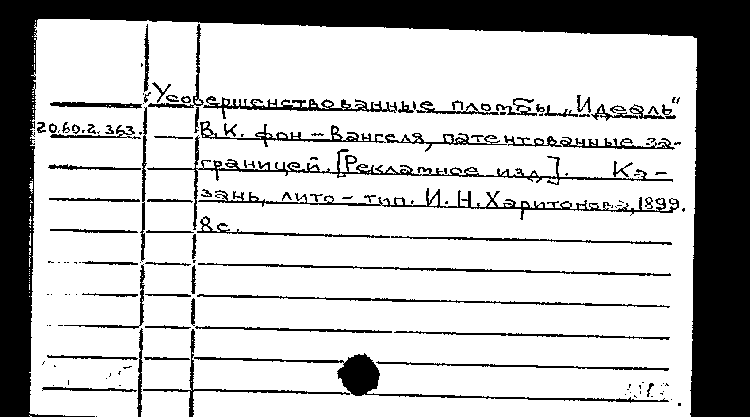 Усовершенствованные пломбы „Идеалъ"
20.60.2.363. В.К. фон-Вангеля, патентованные за-
границей. [Рекламное изд.]. Ка-
зань, лито-тип. И.Н.Харитонова, 1899.
8с.